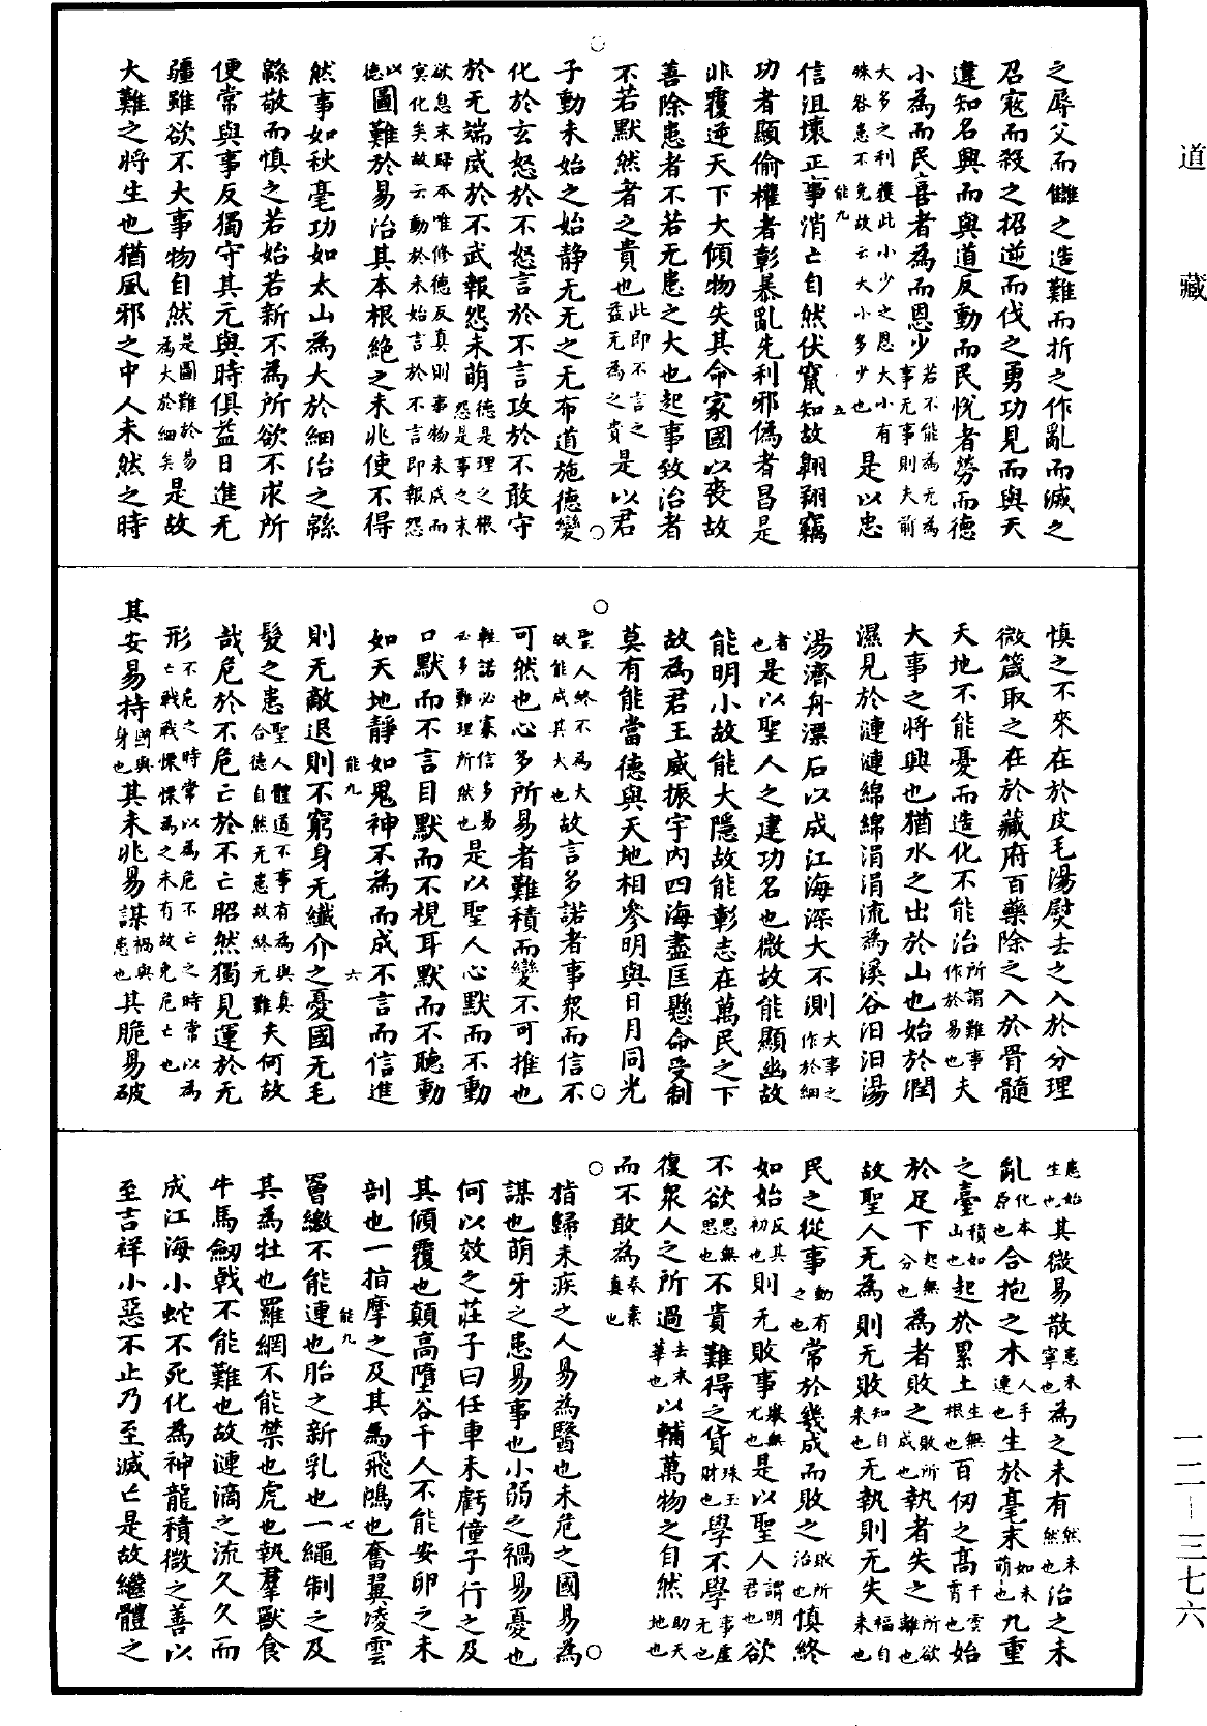 道藏
之辱父而讎之造難而折之作亂而滅之
召寇而殺之招逆而伐之勇功見而與天
違知名興而與道反動而民悅者勞而德
小為而民喜者為而恩少若不能為无為事无事則夫前
大多之利獲此小少之恩大小有殊咎患不免故云大小多少也是以忠
信沮壞正事消亡自然伏竄知故翱翔竊
能九 五
功者顯偷權者彰暴亂先利邪偽者昌是
非覆逆天下大傾物失其命家國以喪故
善除患者不若无患之大也起事致治者
不若默然者之貴也此即不言之益无為之貴是以君
子動未始之始静无无之无布道施德變
化於玄怒於不怒言於不言攻於不敢守
於无端威於不武報怨未萌德是理之根怨是事之末
欲息末歸本唯修德反真則事物未成而寞化矣故云動於未始言於不言即報怨
以德圖難於易治其本根絶之未兆使不得
然事如秋毫功如太山為大於細治之緜
緜敬而慎之若始若新不為所欲不求所
便常與事反獨守其元與時俱益日進无
疆雖欲不大事物自然是圖難於易為大於細矣是故
大難之將生也猶風邪之中人未然之時
慎之不來在於皮毛湯熨去之入於分理
微箴取之在於藏府百藥除之入於骨髓
天地不能憂而造化不能治所謂難事作於易也夫
大事之將興也猶水之出於山也始於潤
濕見於漣漣綿綿涓涓流為溪谷汩汩湯
湯濟舟漂石以成江海深大不測大事之作於細
者也是以聖人之建功名也微故能顯幽故
能明小故能大隱故能彰志在萬民之下
故為君王威振宇内四海盡匡懸命受制
莫有能當德與天地相參明與日月同光
聖人終不為大故能成其大也故言多諾者事衆而信不
可然也心多所易者難積而變不可推也
輕諾必寡信多易必多難理所然也是以聖人心默而不動
口默而不言目默而不視耳默而不聽動
如天地靜如鬼神不為而成不言而信進
能九 六
則无敵退則不窮身无纖介之憂國无毛
髮之患聖人體道不事有為與真合德自然无患故終无難夫何故
哉危於不危亡於不亡昭然獨見運於无
形不危之時常以為危不亡之時常以為亡戰戰慄慄為之未有故免危亡也
其安易持國與身也其未兆易謀禍與患也其脆易破
患始生也其微易散患未寧也為之未有然未然也治之未
亂化本原也合抱之木人手連也生於毫末如未萌也九重
之臺積如山也起於累土生無根也百仞之高干雲霄也始
於足下起無分也為者敗之敗所成也執者失之所欲離也
故聖人无為則无敗知自來也无執則无失福自來也
民之從事動有之也常於幾成而敗之眠所治也慎終
如始反其初也則无敗事舉無尤也是以聖人謂明君也欲
不欲思無思也不貴難得之貨珠玉財也學不學事虛无也
復衆人之所過去末華也以輔萬物之自然助天地也
而不敢為奉素真也
指歸未疾之人易為醫也未危之國易為
謀也萌牙之患易事也小弱之禍易憂也
何以效之莊子曰任車未虧僮子行之及
其傾覆也顛高墮谷千人不能安卵之未
剖也一指摩之及其為飛鴻也奮翼凌雲
能九 七
罾繳不能連也胎之新乳也一繩制之及
其為壯也羅網不能禁也虎也執羣獸食
牛馬劒戟不能難也故漣滴之流久久而
成江海小蛇不死化為神龍積微之善以
至吉祥小惡不止乃至滅亡是故繼體之
一二—三七六